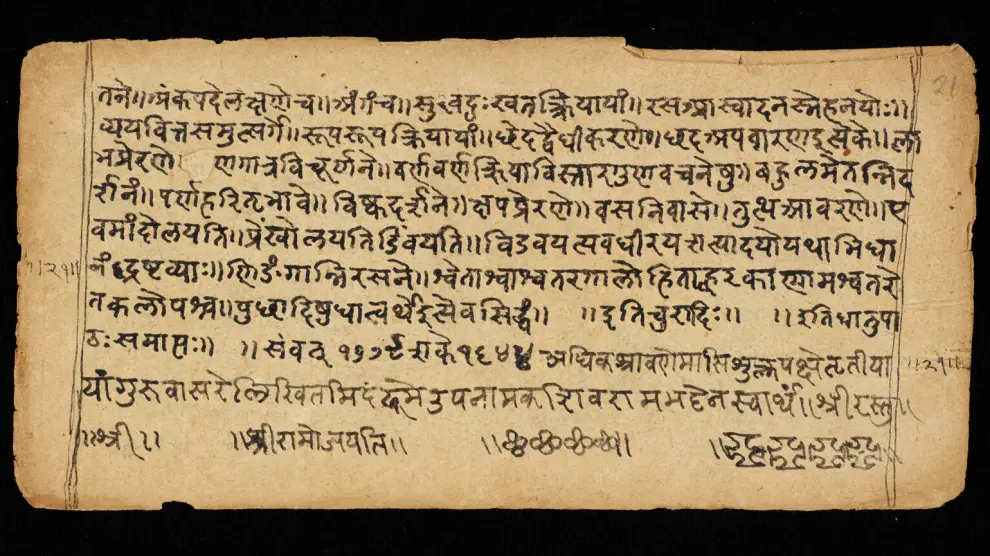 तने॥अंकपदेलक्षणेच॥अंगंच॥सुखदुःखतत्क्रियायां॥रसआस्वादनस्नेहनयोः॥
व्ययवित्तसमुत्सर्गे॥रूपरूपक्रियायां॥छेदद्वैधीकरणे॥छदअपवारणइत्येके॥ला
भप्रेरणे॥ णगात्रविचूर्णने॥वर्णवर्णक्रियाविस्तारगुणवचनेषु॥बहुलमेतन्निद
र्शनं॥पर्णहरितभावे॥विष्कदर्शने॥क्षपप्रेरणे॥वसनिवासे॥तुत्थआवरणे॥ए
वमांदोलयति॥प्रेंखोलयतिडिंवयति॥विडवयत्यवधीरयत्यादयोयथाभिधा
नंद्रष्टव्याः॥णिङंगान्निरसने॥श्वेताश्वाश्वतरगालोडिताह्वरकाणामश्वतरे
तकलोपश्च॥पुछादिषुधात्वर्थेइत्येवसिद्धं॥ ॥इतिचुरादिः॥ ॥इतिधातुपा
ठःसमाप्तः॥ ॥संवत् १७७९शके१६४४ अधिकश्रावणेमासिशुक्लपक्षेतृतीया
यांगुरुवासरेलिखितमिदं उपनामक रामभट्टेनस्वार्थं॥श्रीरस्तु॥
॥श्री॥ ॥श्रीरामोजयति॥
॥२१॥
॥२१॥
21